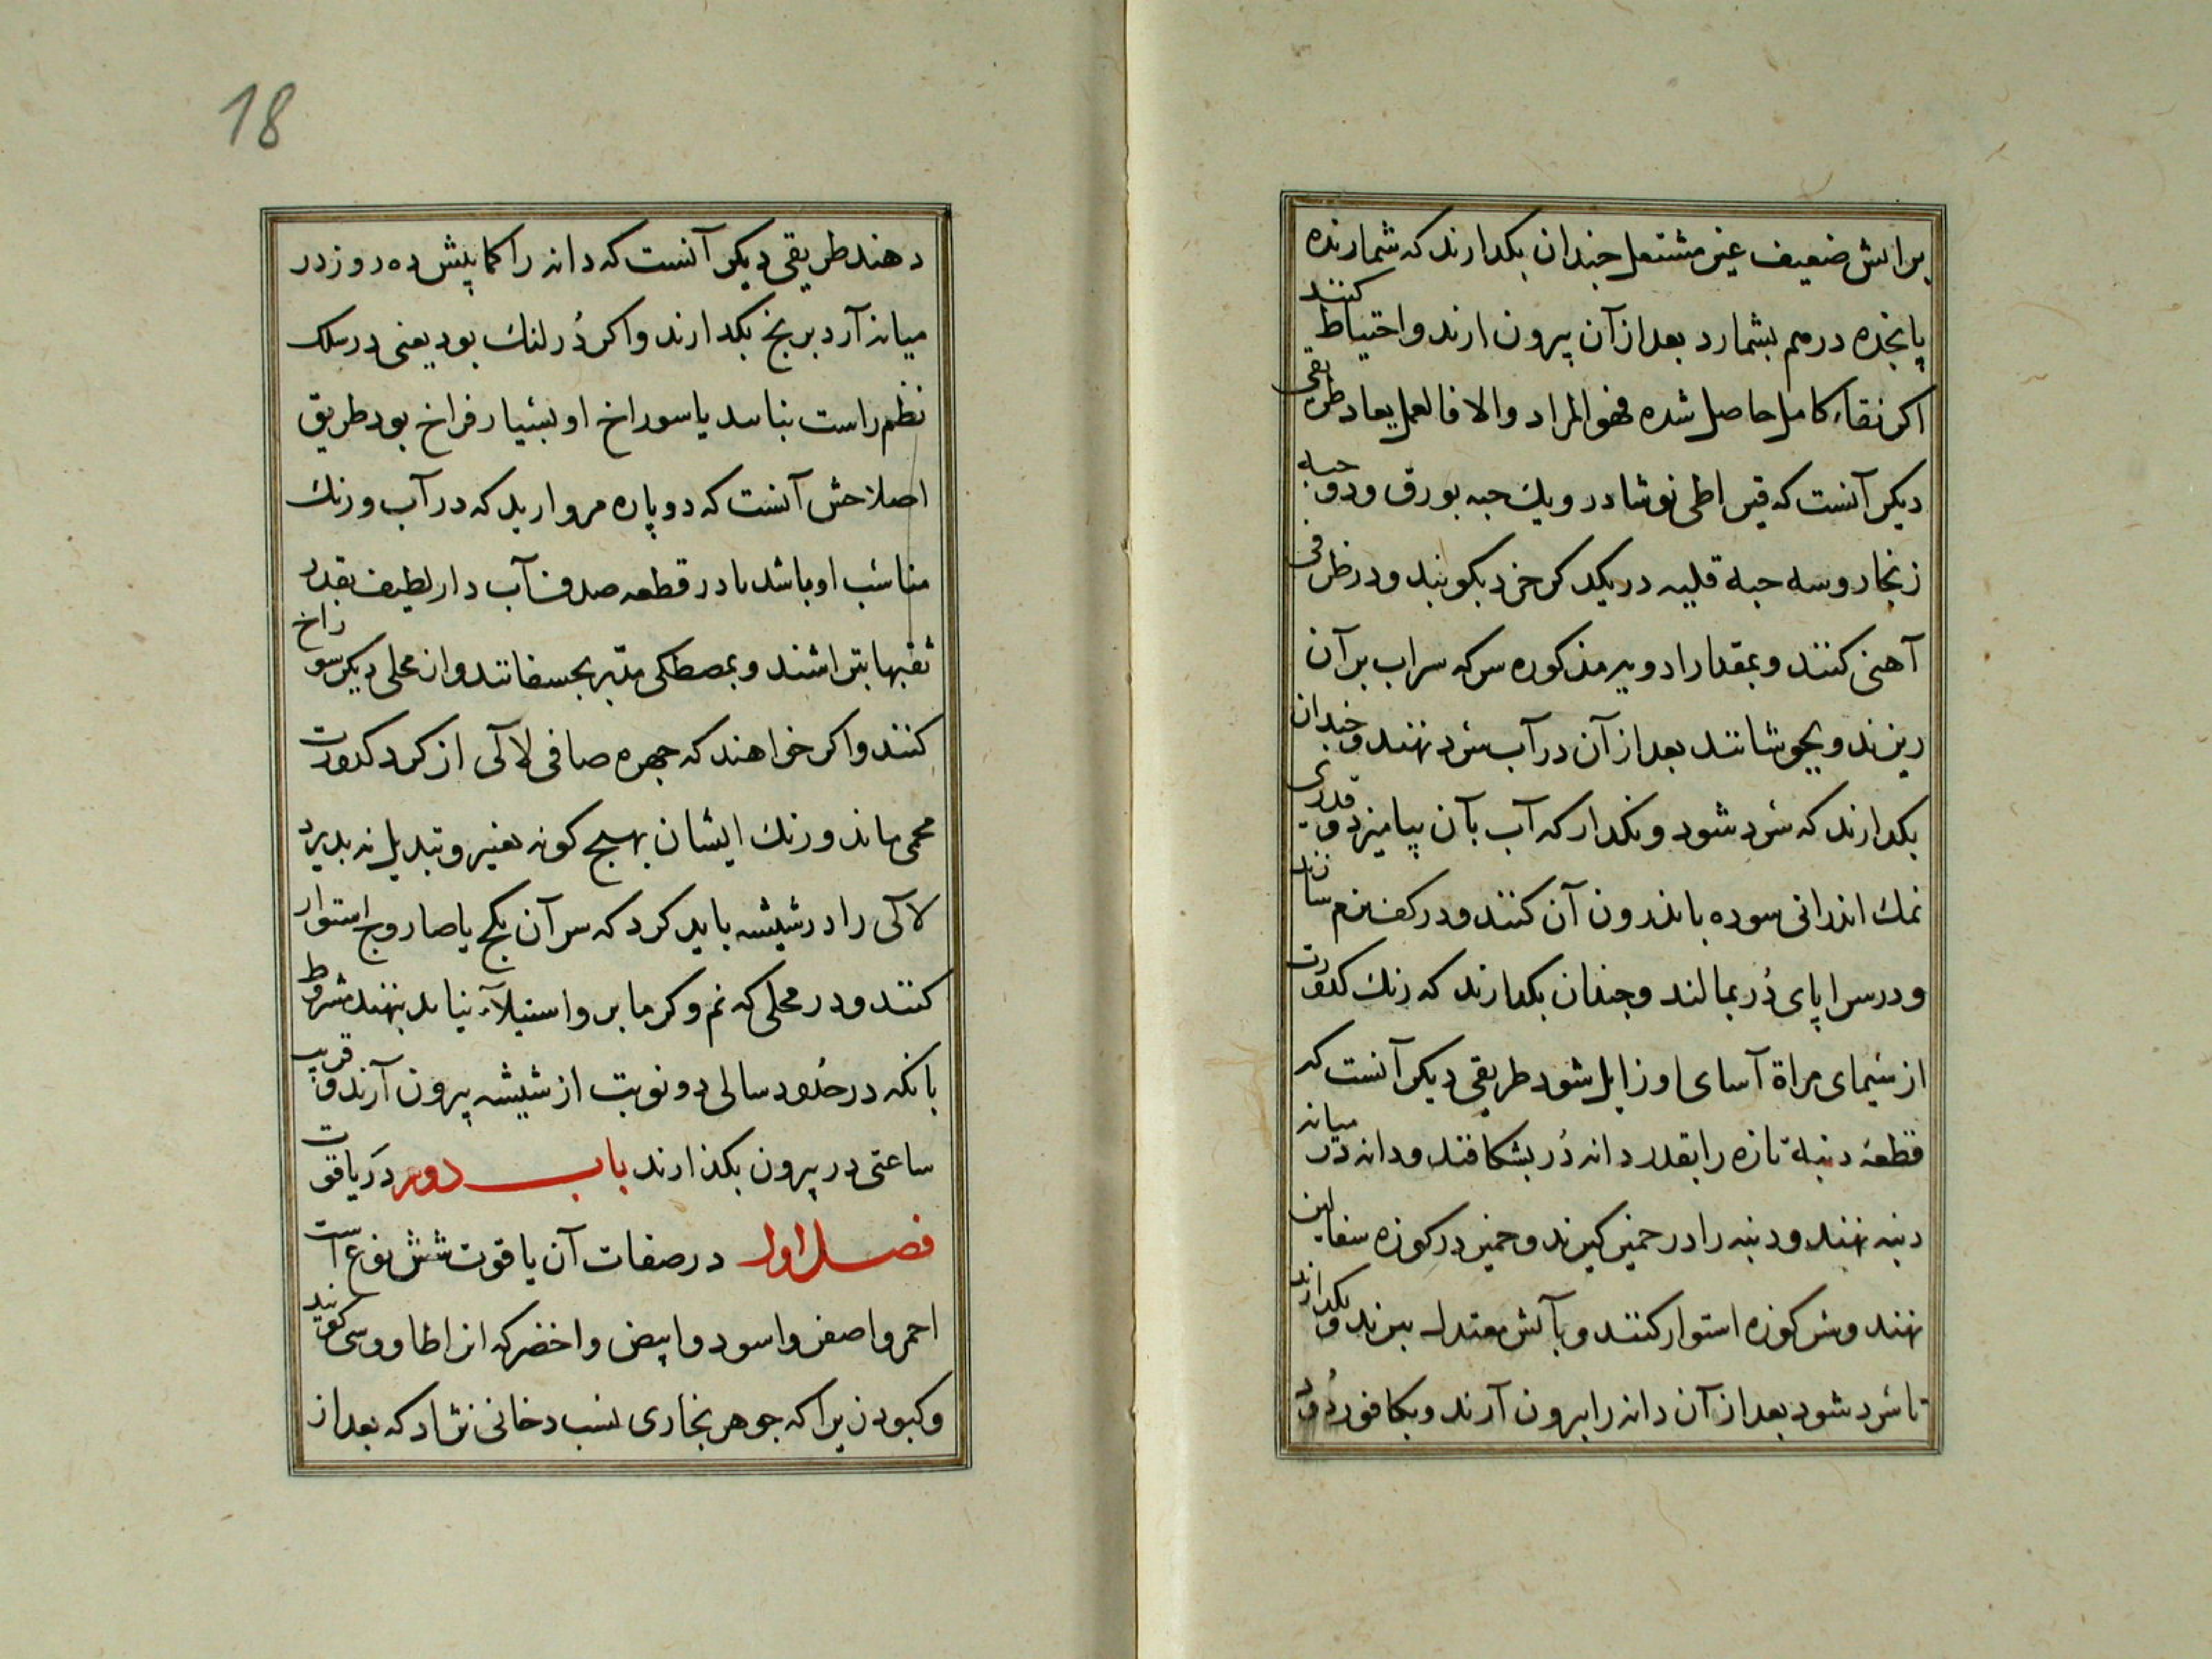 بر اتش ضعیف غیر مشتعل جندان بکدارند که شمارنده
پانجده درهم بشمارد بعد از آن بیرون ارند و احتیاط کنند
اکر نقاء کامل حاصل شده فهو المراد والا فالعمل یعاد طریقی
دیکر آنست که قیراطی نوشادر و یک حبه بورق و دو حبه
زنجار و سه حبه قلیه در یکدکر خرد بکوبند و در ظرفی
آهنی کنند و بمقدار ادویه مذکوره سرکه سراب بر آن
ریزند و بجوشانند بعد از آن در آب سرد نهند و جندان
بکدارند که سرد شود و نکدار که آب بآن بیامیزد و قدری
نمک اندرانی سوده باندرون آن کنند و در کف نرم سازند
و در سراپای دُر بمالند و جندان بکدارند که زنک کدورت
از سیمای مراة آسای او زایل شود طریقی دیکر آنست که
قطعهٔ دنبهٔ تازه را بقدر دانه دُر بشکافند و دانه در میانه
دنبه نهند و دنبه را در خمیر کیرند و خمیر در کوزه سفالین
نهند و سر کوزه استوار کنند و بآتش معتدل بیزند و بکدارند
تا سرد شود بعد از آن دانه را بیرون آرند و بکافور دُود
18
دهند طریقی دیکر آنست که دانه را کما بیش ده روز در
میانه آرد برنج بکدارند و اکر دُر لنک بود یعنی در سلک
نظم راست نباسد یا سوراخ او بسیار فراخ بود طریق
اصلاحش آنست که دو پاره مروارید که در آب و رنک
مناسب او باشد یا در قطعه صدف آب دار لطیف بقدر
ثقبها بتراشند و بمصطکی مدّبر بجسفانند و از محلی دیکر سوراخ
کنند و اکر خواهند که جهره صافی لآلی از کرد کدورت
محمی ماند و رنک ایشان بهیج کونه تغیر و تبدیل نه بدیرد
لآلی را در شیشه باید کرد که سر آن بکج یا صاروج استوار
کنند و در محلی که نم و کرما بر و استیلآء نیاید بنهند مشروط
بانکه در حدُود سالی دو نوبت از شیشه بیرون آرند و قریب
ساعتی در بیرون بکذارند باب دوم در یاقوت
فصل اول در صفات آن یاقوت شش نوع است
احمر و اصفر و اسود و ابیض و اخضر که انرا طاووسی کویند
و کبود زیرا که جوهر بخاری نسب دخانی نژاد که بعد از